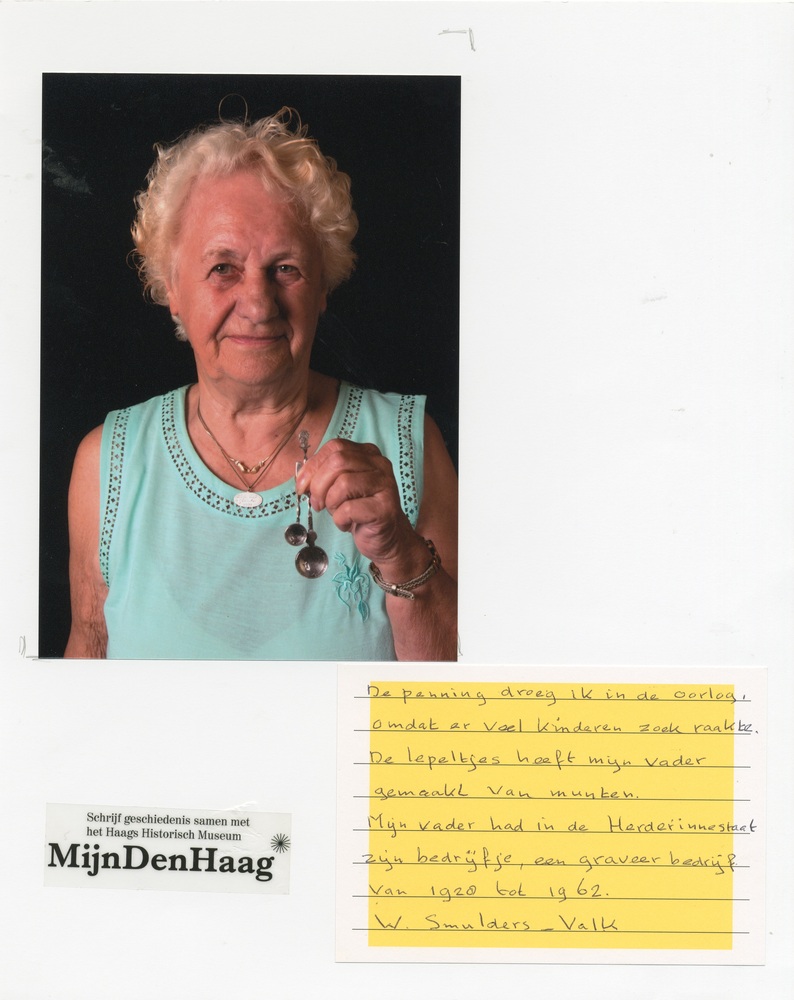 De penning droeg ik in de oorlog,
omdat er veel kinderen zoek raakte.
De lepeltjes heeft mijn vader
gemaakt van munten.
Mijn vader had in de Herderinnestaat
zijn bedrijfje, een graveer bedrijf
van 1920 tot 1962.
W. Smulders - Valk
Schrijf geschiedenis samen met
het Haags Historisch Museum
MijnDenHaag